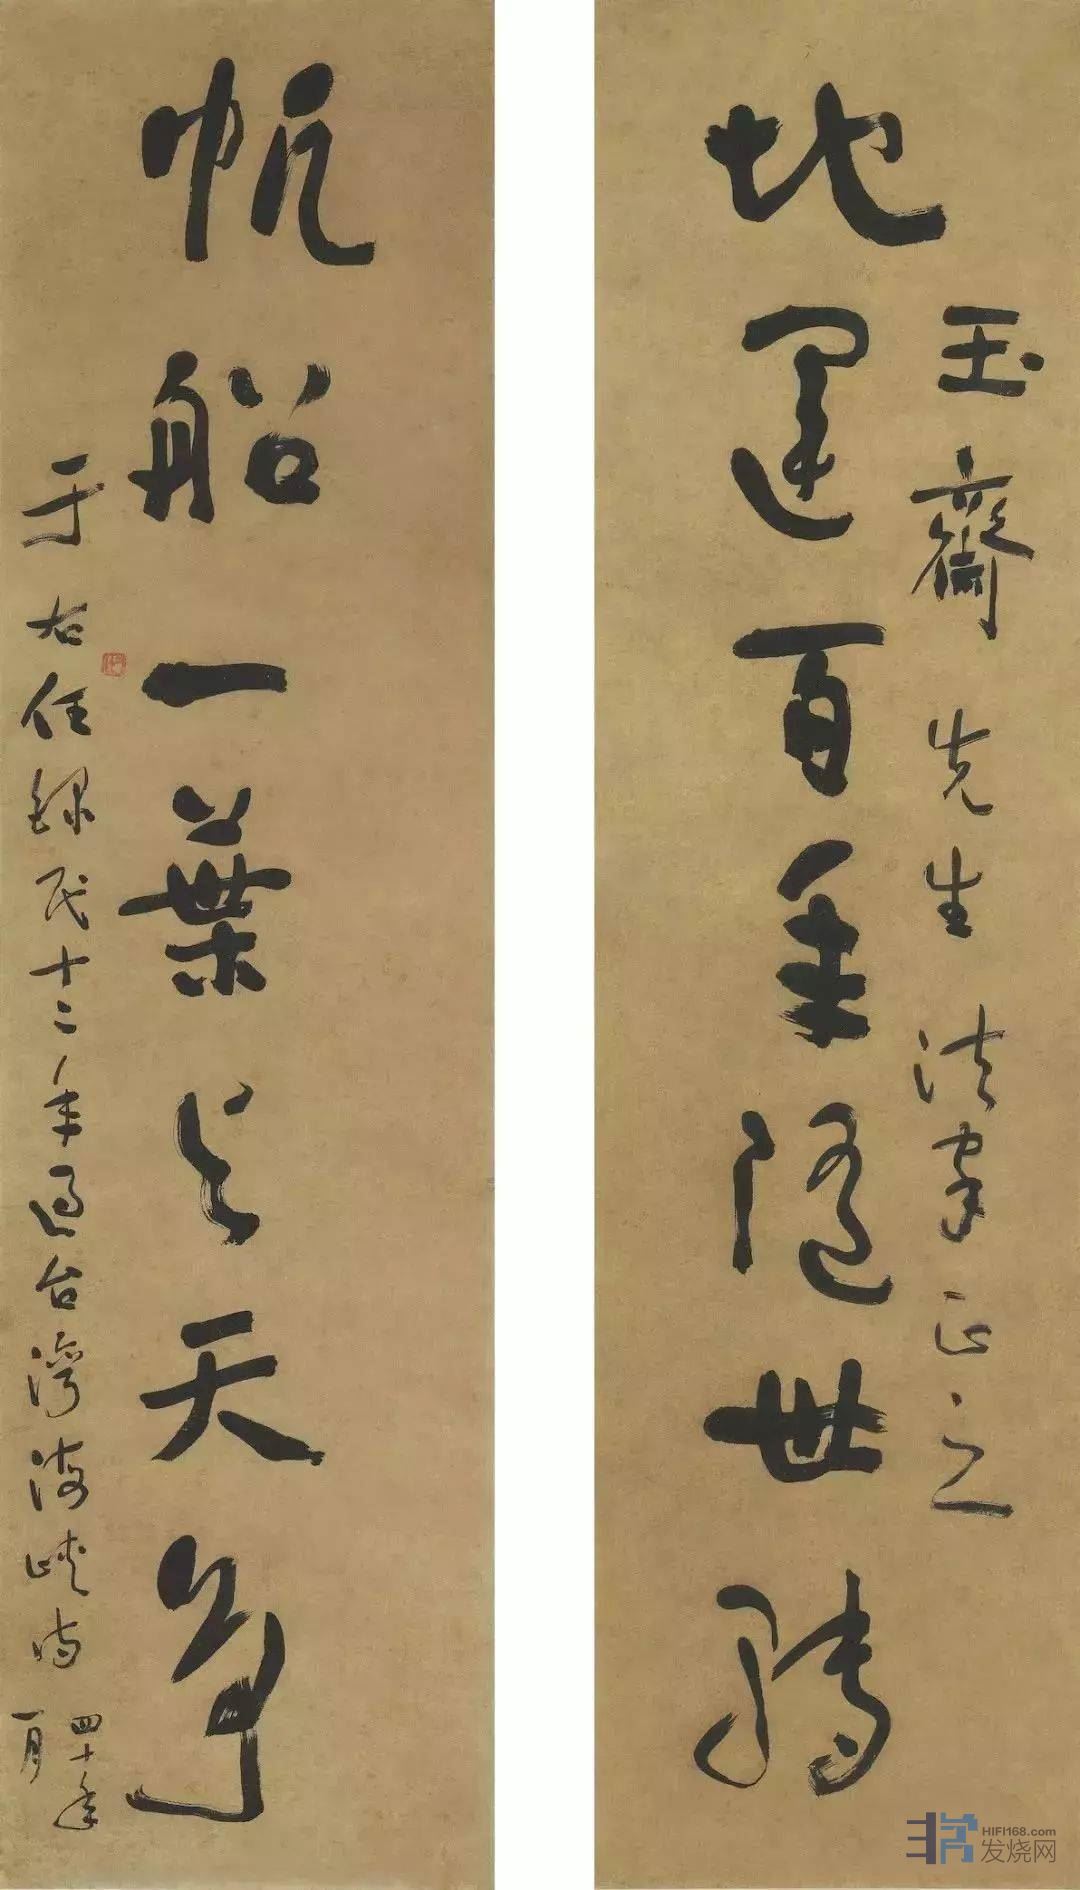 玉齋先生法家正之
地運百年隨世轉
帆船一葉与天爭
于右任錄民十二年過台灣海峽詩
四十年
一月
HIFI168.com
发烧网